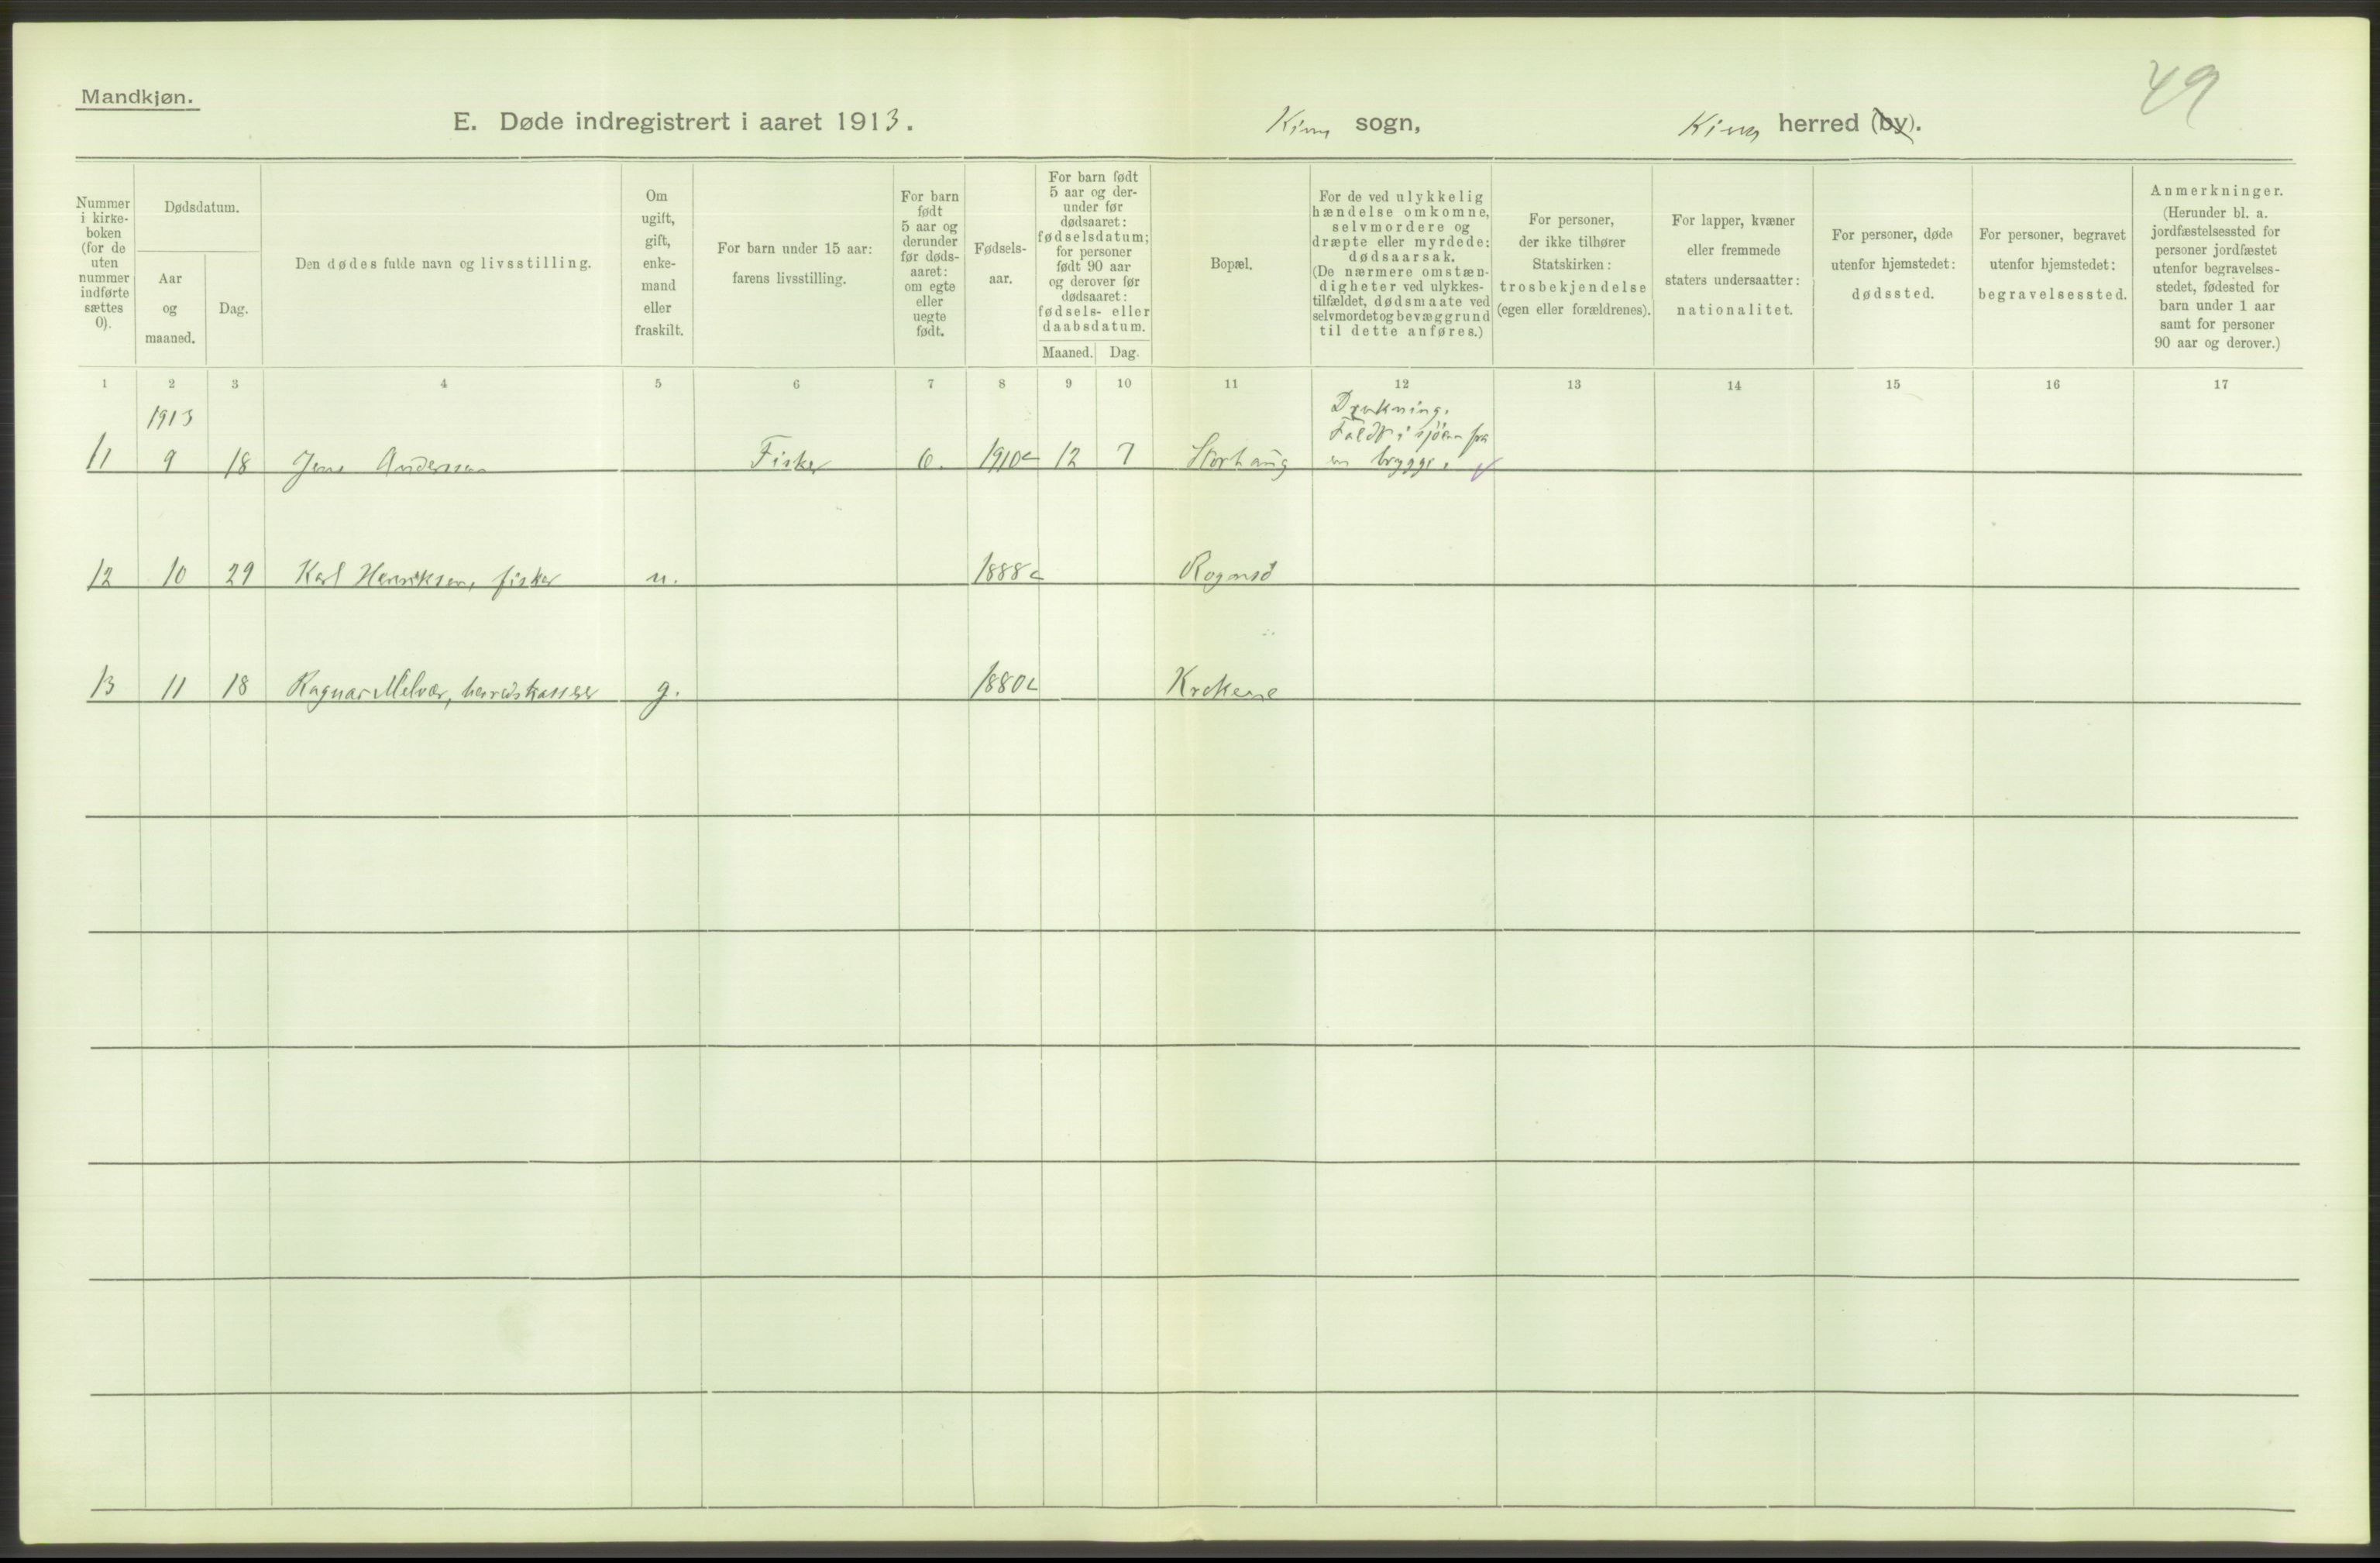 49
Mandkjøn.
E. Døde indregistrert i aaret 1913. Kinn sogn, Kinn herred (by).
Nummer i kirke-boken (for de uten nummer indførte sættes 0).
Dødsdatum.
Aar og maaned.
Dag.
Den dødes fulde navn og livsstilling.
Om ugift, gift, enke-mand eller fraskilt.
For barn under 15 aar: farens livsstilling.
For barn født 5 aar og derunder før døds-aaret: om egte eller uegte født.
Fødsels-aar.
For barn født 5 aar og der-under før dødsaaret: fødselsdatum; for personer født 90 aar og derover før dødsaaret: fødsels- eller daabsdatum.
Maaned. Dag.
Bopæl.
For de ved ulykkelig hændelse omkomne, selvmordere og dræpte eller myrdede: dødsaarsak. (De nærmere omstæn-digheter ved ulykkes-tilfældet, dødsmaate ved selvmordet og bevæggrund til dette anføres.)
For personer, der ikke tilhører Statskirken: trosbekjendelse (egen eller forældrenes).
For lapper, kvæner eller fremmede staters undersaatter: nationalitet.
For personer, døde utenfor hjemstedet: dødssted.
For personer, begravet utenfor hjemstedet: begravelsessted.
Anmerkninger. (Herunder bl. a. jordfæstelsessted for personer jordfæstet utenfor begravelses-stedet, fødested for barn under 1 aar samt for personer 90 aar og derover.)
1 2 3 4 5 6 7 8 9 10 11 12 13 14 15 16 17
1913
Drukning.
Faldt i sjöen fra
11 9 18 Jens Anderssen Fisker e. 1910 12 7 Storhaug en brygge.
12 10 29 Karl Henriksen, fisker u. 1888 Rognsö
13 11 18 Ragnar Melvær, herredskasserer g. 1880 Krokene